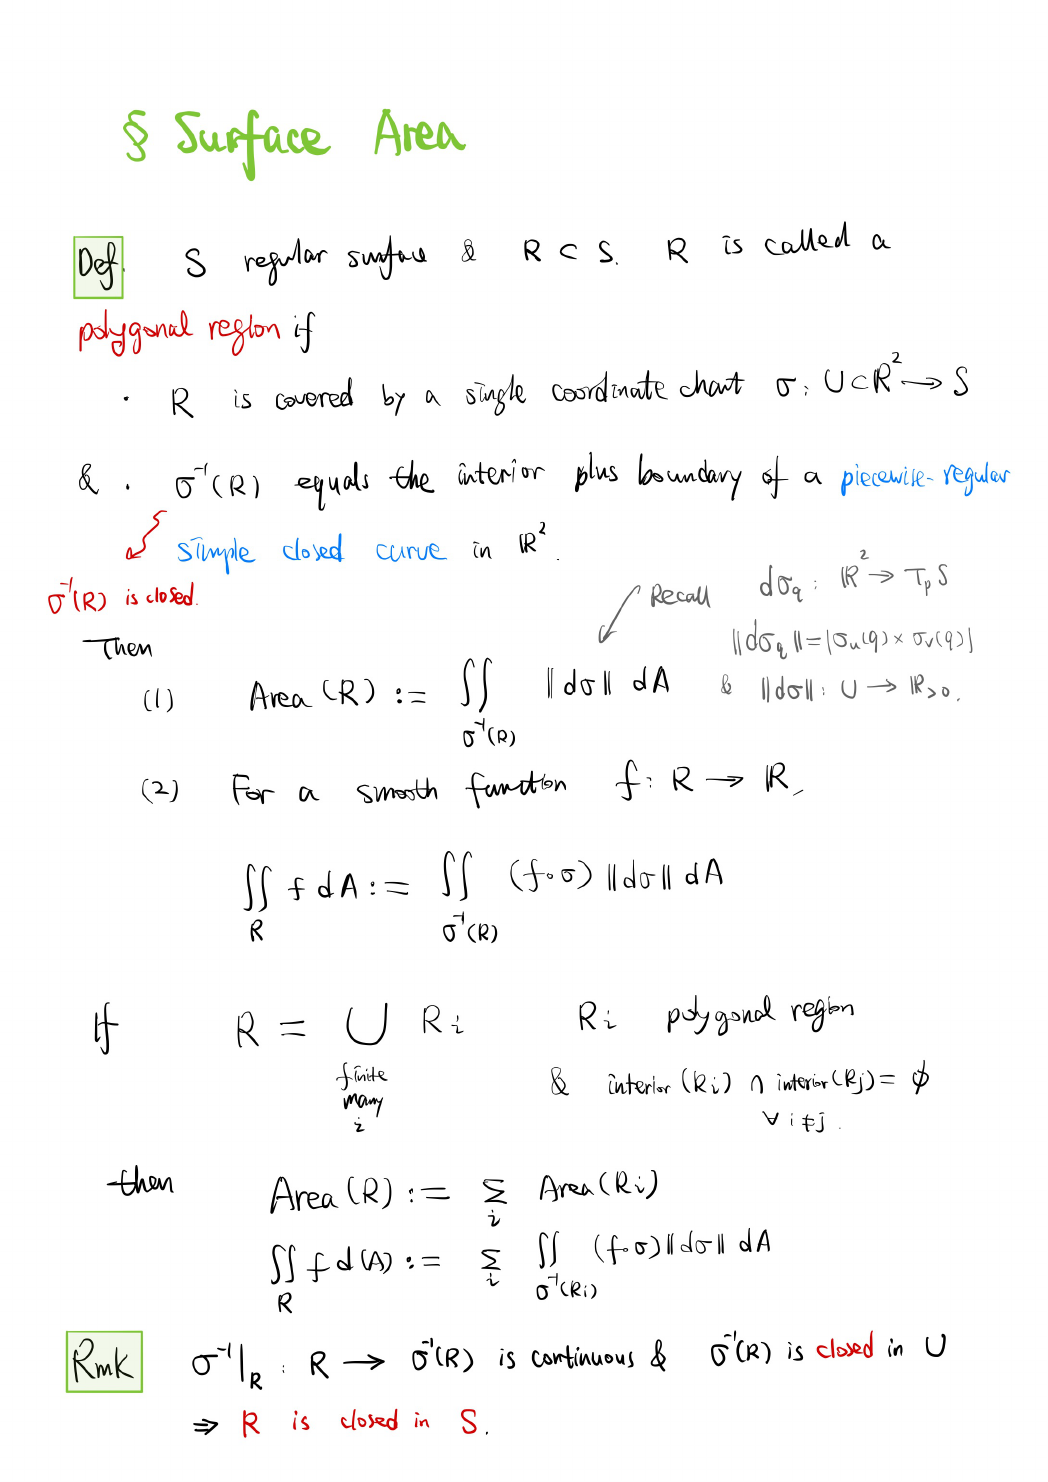 § Surface Area
Def. S regular surface & R ⊂ S. R is called a
polygonal region if
· R is covered by a single coordinate chart σ: U⊂ℝ² → S
& · σ⁻¹(R) equals the interior plus boundary of a piecewise-regular
simple closed curve in ℝ².
σ⁻¹(R) is closed.
Recall dσ_q : ℝ² → T_pS
‖dσ_q‖ = |σ_u(q) × σ_v(q)|
& ‖dσ‖ : U → ℝ_{>0}.
Then
(1) Area(R) := ∬_{σ⁻¹(R)} ‖dσ‖ dA
(2) For a smooth function f: R → ℝ,
∬_R f dA := ∬_{σ⁻¹(R)} (f∘σ) ‖dσ‖ dA
If R = ⋃_{finite many i} R_i R_i polygonal region
& interior(R_i) ∩ interior(R_j) = ϕ
∀ i ≠ j.
then Area(R) := Σ_i Area(R_i)
∬_R f d(A) := Σ_i ∬_{σ⁻¹(R_i)} (f∘σ) ‖dσ‖ dA
Rmk σ⁻¹|_R : R → σ⁻¹(R) is continuous & σ⁻¹(R) is closed in U
⇒ R is closed in S.